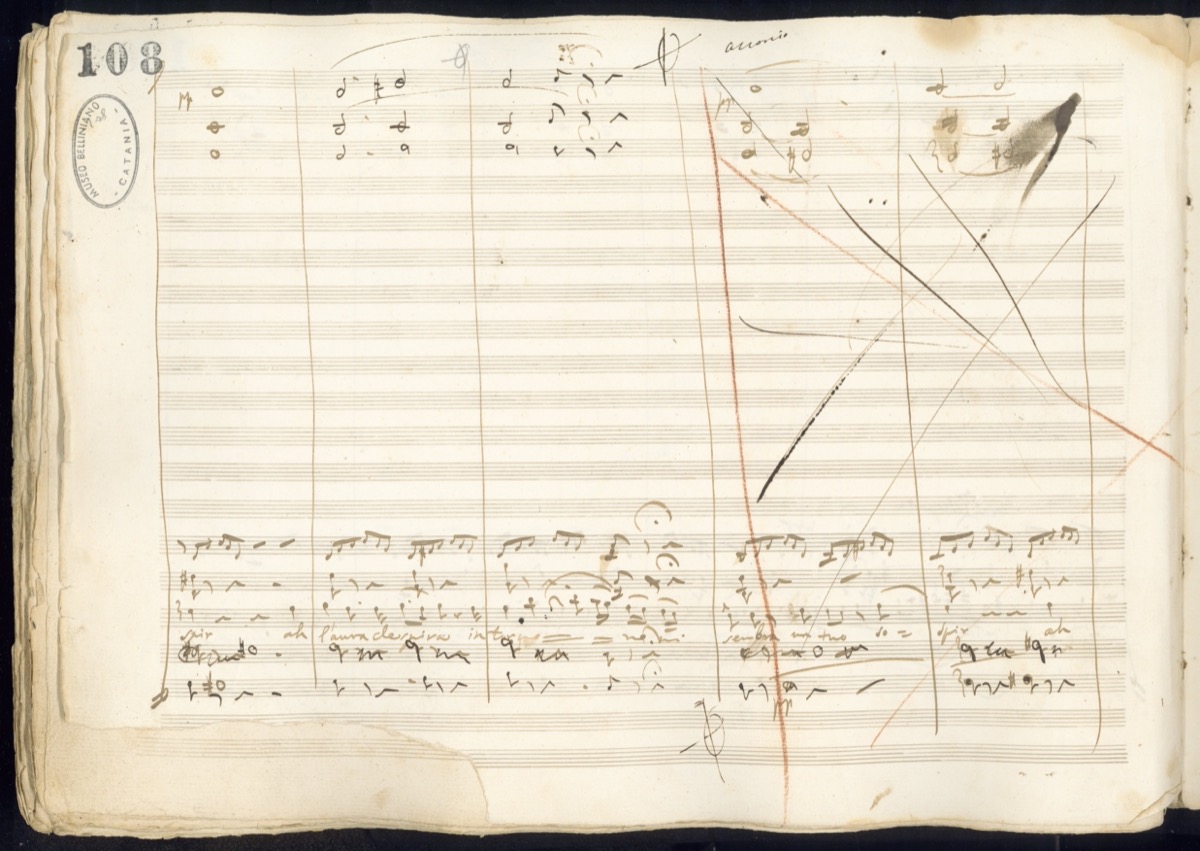 108
MUSEO BELLINIANO
CATANIA
pp
pp
spir ah l'aura che spira intorno sembra un tuo so = spir ah
pp